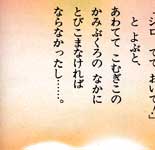 「シロ、でて おいで！」
と よぶと、
あわてて こむぎこの
かみぶくろの なかに
とびこまなければ
ならなかったし……。